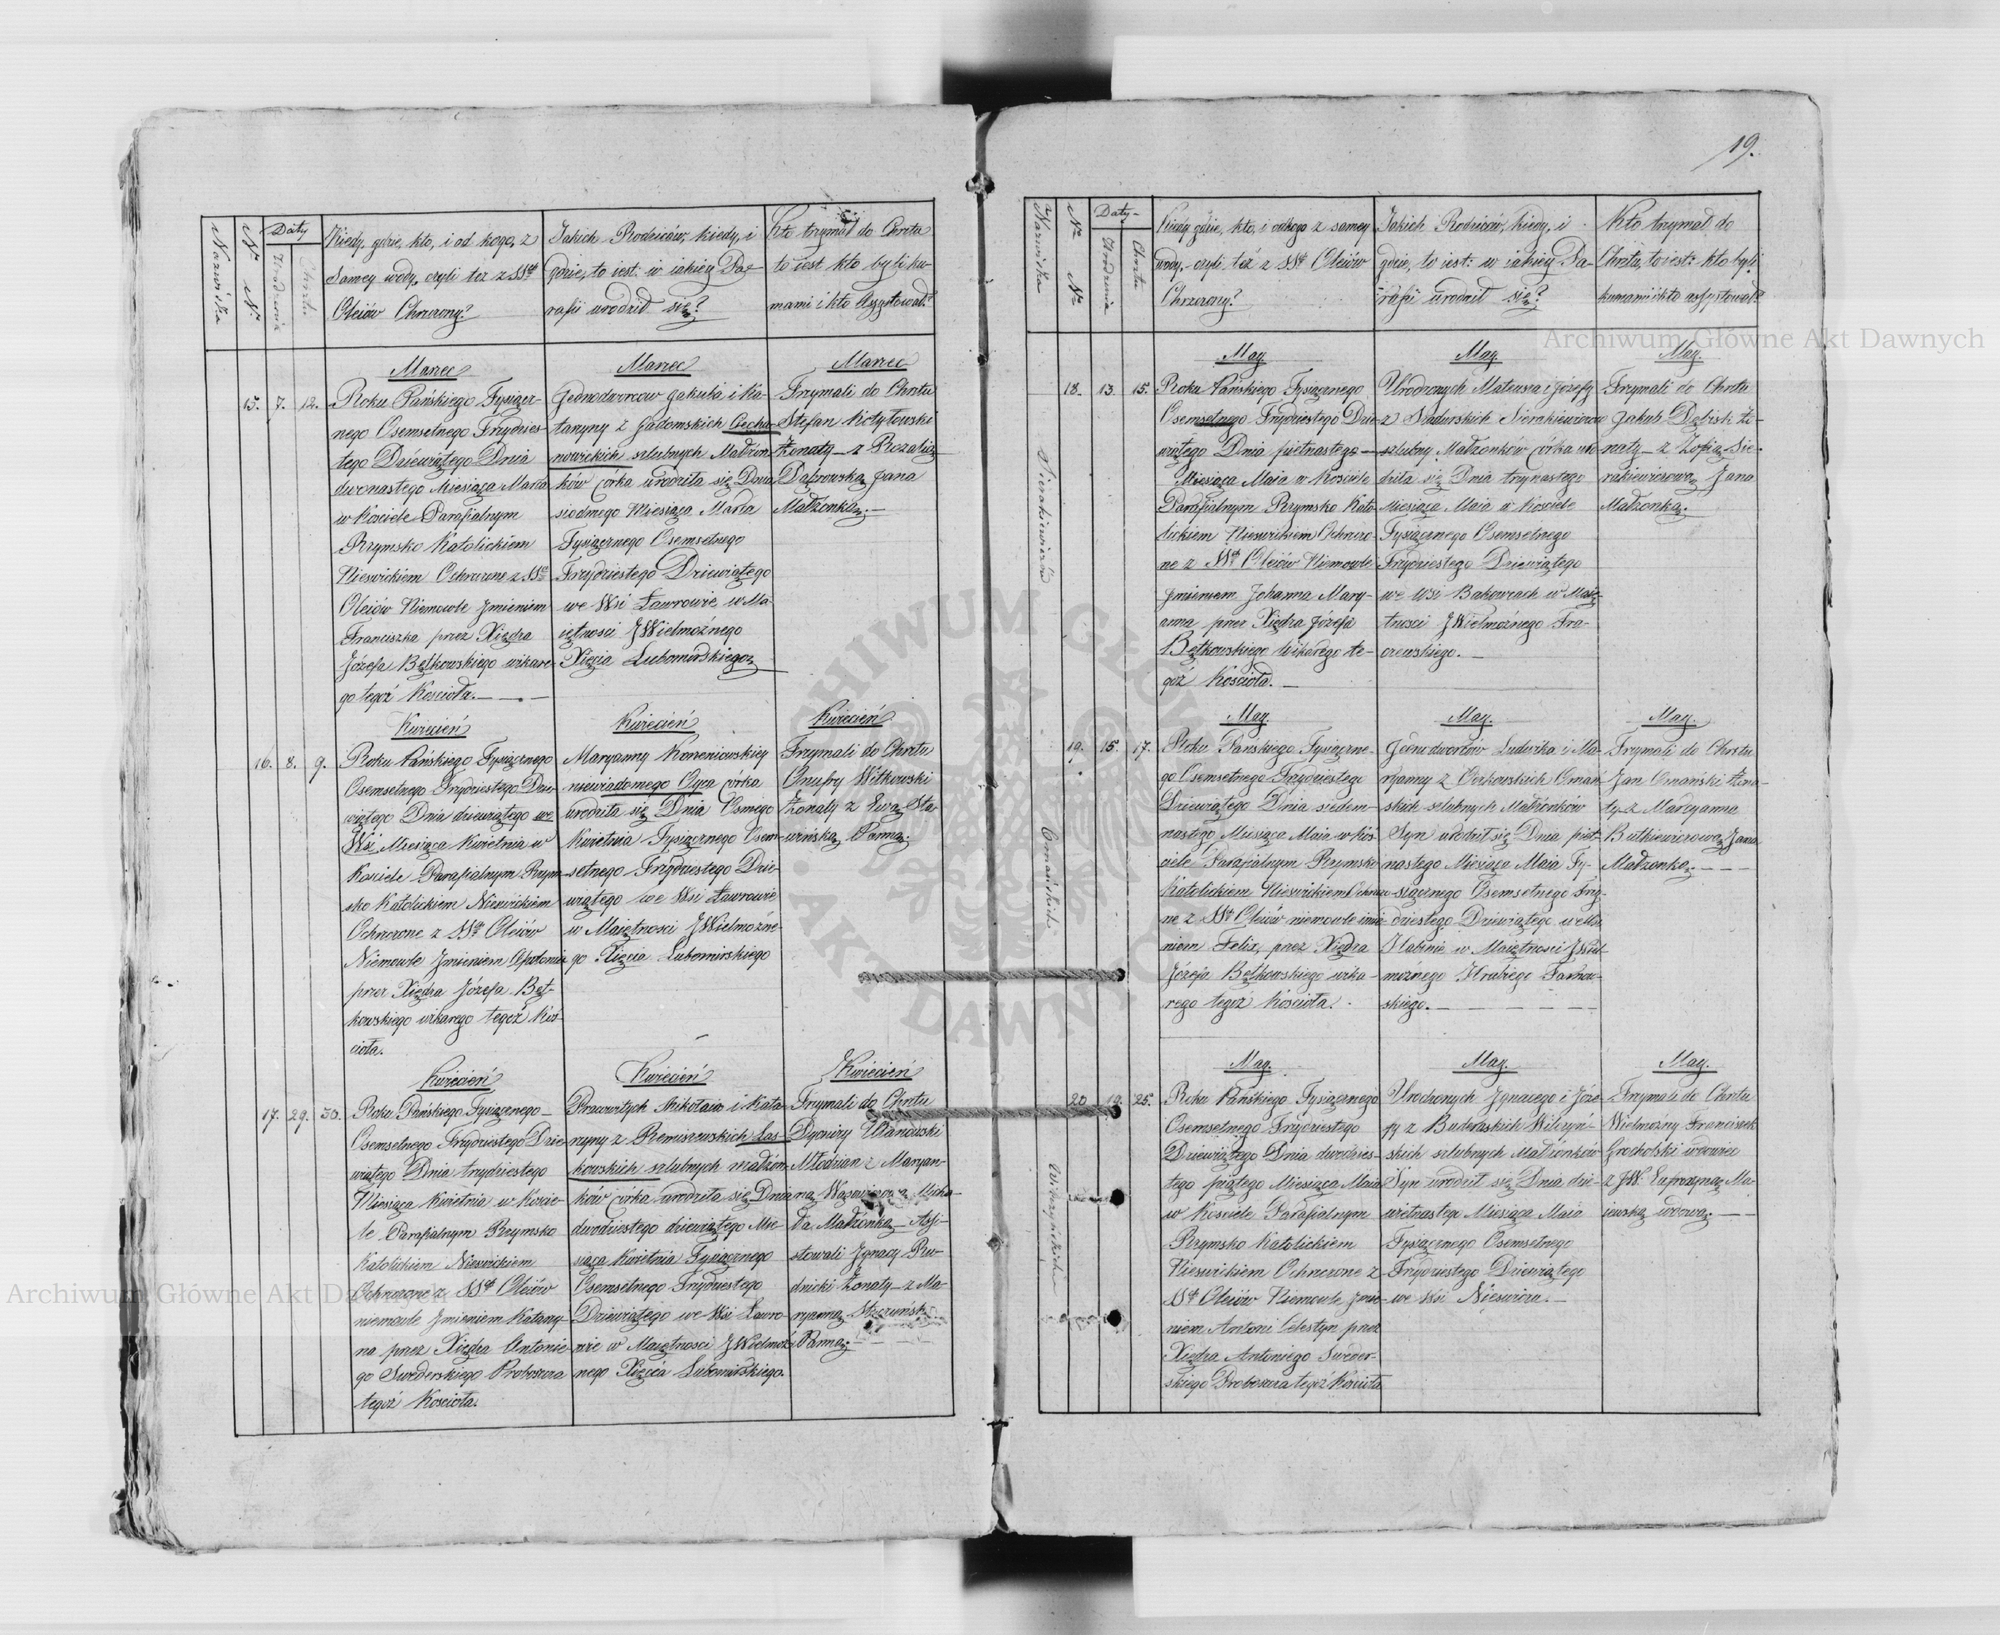 19.
Nazwiska
Nr Nr
Daty
Urodzenia
Chrztu
Kiedy, gdzie, kto, i od kogo, z
samey wody, czyli też z SSch
Oleiów Chrzczony?
Jakich Rodziców, kiedy, i
gdzie, to iest: w iakiey Pa-
rafii urodził się?
Kto trzymał do Chrztu
to iest kto byli ku-
mami i kto Assystował?
Marzec
15. 7. 12.
Roku Pańskiego Tysiącz-
nego Osemsetnego Trzydzies-
tego Dziewiątego Dnia
dwónastego Miesiąca Marca
w Kosciele Parafialnym
Rzymsko Katolickiem
Nieswickiem Ochrzczone z SSch
Oleiów Niemowle Jmieniem
Franciszka przez Xiędza
Józefa Bętkowskiego wikare-
go tegoż Kościoła.
Marzec
Jednodworcow Jakuba i Ka-
tarzyny z Gadomskich Cecha-
nowickich szlubnych Małżon-
ków Córka urodziła się Dnia
siodmego Miesiąca Marca
Tysiącznego Osemsetnego
Trzydziestego Dziewiątego
we Wsi Ławrowie w Ma-
iętnosci JWielmożnego
Xięcia Lubomirskiego
Marzec
Trzymali do Chrztu
Stefan Kotyłowski
Żonaty z Rozalią
Dąbrowską Jana
Małżonką.
Kwiecień
16. 8. 9.
Roku Pańskiego Tysiącznego
Osemsetnego Trzydziestego Dzie-
wiątego Dnia dziewiątego we
Wsi Miesiąca Kwietnia w
Kosciele Parafialnym Rzym-
sko Katolickiem Nieswickiem
Ochrzczone z SSch Oleiów
Niemowle Jmieniem Apolonia
przez Xiędza Józefa Bęt-
kowskiego wikarego tegoż Koś-
cioła.
Kwiecień
Maryanny Korzeniowskiey
niewiadomego Oyca córka
urodziła się Dnia Osmego
Kwietnia Tysiącznego Osem-
setnego Trzydziestego Dzie-
wiątego we Wsi Ławrowie
w Maiętnosci JWielmożne-
go Xięcia Lubomirskiego
Kwiecień
Trzymali do Chrztu
Onufry Witkowski
Żonaty z Ewą Sta-
Panną.
Kwiecień
17. 29. 30.
Roku Pańskiego Tysiącznego
Osemsetnego Trzydziestego Dzie-
wiątego Dnia trzydziestego
Miesiąca Kwietnia w Koscie-
le Parafialnym Rzymsko
Katolickiem Nieswickiem
Ochrzczone z SSch Oleiów
niemowle Jmieniem Katarzy-
na przez Xiędza Antonie-
go Swederskiego Proboszcza
tegoż Kościoła.
Kwiecień
Pracowitych Mikołaia i Kata-
rzyny z Remiszewskich Las-
kowskich szlubnych małżon-
ków córka urodziła się Dnia
dwudziestego dziewiątego Mie-
siąca Kwietnia Tysiącznego
Osemsetnego Trzydziestego
Dziewiątego we Wsi Ławro-
wie w Maiętnosci JWielmoż-
nego Xięcia Lubomirskiego.
Kwiecień
Trzymali do Chrztu
Dyonizy Ulanowski
Młodzian z Maryan-
ną Micha-
ła Małżonką Assi-
stowali Jgnacy Ru-
dnicki Żonaty z Ma-
ryanną
Panną.
Nazwiska
Nr Nr
Daty
Urodzenia
Chrztu
Kiedy gdzie, kto, i od kogo z samey
wody, czyli też z SSch Oleiów
Chrzczony?
Jakich Rodziców, kiedy, i
gdzie, to iest: w iakiey Pa-
rafii urodził się?
Kto trzymał do
Chrztu, to iest: kto byli
kumami i kto assystował?
May
Sierakiewiczów
18. 13. 15.
Roku Pańskiego Tysiącznego
Osemsetnego Trzydziestego Dzie-
wiątego Dnia piętnastego
Miesiąca Maia w Kosciele
Parafialnym Rzymsko Kato-
lickiem Nieswickiem Ochrzczo-
ne z SSch Oleiów Niemowle
Jmieniem Johanna Mary-
anna przez Xiędza Józefa
Bętkowskiego Wikarego te-
goż Kościoła.
May.
Urodzonych Mateusza i Józefy
z Sadurskich Sierakiewiczow
szlubny Małżonków córka uro-
dziła się Dnia trzynastego
Miesiąca Maia w Kosciele
Tysiącznego Osemsetnego
Trzydziestego Dziewiątego
we Wsi Bakowcach w Maię-
tnosci JWielmożnego Fra-
czewskiego.
May.
Trzymali do Chrztu
Jakub Dębisk Żo-
naty z Zofią Sie-
rakiewiczową Jana
Małżonką.
May.
Omańskich
19. 15. 17.
Roku Pańskiego Tysiączne-
go Osemsetnego Trzydziestego
Dziewiątego Dnia siedem-
nastego Miesiąca Maia w Koś-
ciele Parafialnym Rzymsko
Katolickiem Nieswickiem Ochrzczo-
ne z SSch Oleiów niemowle imie-
niem Felix, przez Xiędza
Józefa Bętkowskiego wika-
rego tegoż Kościoła.
May.
Jednodworców Ludwika i Ma-
ryanny z Omań-
skich szlubnych Małżonków
Syn urodził się Dnia pięt-
nastego Miesiąca Maia Ty-
siącznego Osemsetnego Trzy-
dziestego Dziewiątego we Wsi
Hatinie w Maiętnosci JWiel-
możnego Hrabiego Tarnow-
skiego.
May.
Trzymali do Chrztu
Jan Omański Żona-
ty z Maryanną
Butkiewiczową Jana
Małżonką.
May.
Wilczyńskich
20 19. 25.
Roku Pańskiego Tysiącznego
Osemsetnego Trzydziestego
Dziewiątego Dnia dwudzies-
tego piątego Miesiąca Maia
w Kosciele Parafialnym
Rzymsko Katolickiem
Nieswickiem Ochrzczone z
SSch Oleiów Niemowle Jmie-
niem Antoni Celestyn przez
Xiędza Antoniego Sweder-
skiego Proboszcza tegoż Kościoła
May.
Urodzonych Jgnacego i Józe-
fy z Buderaskich Wilczyń-
skich szlubnych Małżonków
Syn urodził się Dnia dzie-
więtnastego Miesiąca Maia
Tysiącznego Osemsetnego
Trzydziestego Dziewiątego
we Wsi Nieswiczu.
May.
Trzymali do Chrztu
Wielmożny Franciszek
Grocholski wdowiec
z JW. Eufrozyną Ma-
iewską wdową.
Archiwum Główne Akt Dawnych
Archiwum Główne Akt Dawnych
ARCHIWUM GŁÓWNE AKT DAWNYCH